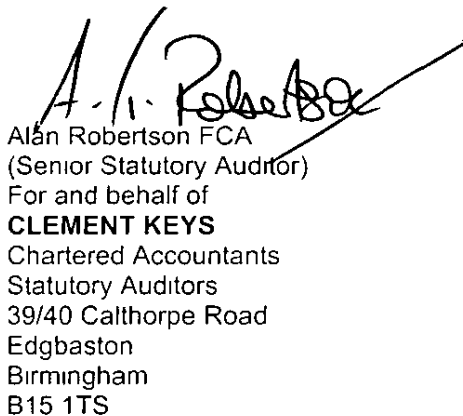 A. T. Robertson
Alan Robertson FCA
(Senior Statutory Auditor)
For and behalf of
CLEMENT KEYS
Chartered Accountants
Statutory Auditors
39/40 Calthorpe Road
Edgbaston
Birmingham
B15 1TS